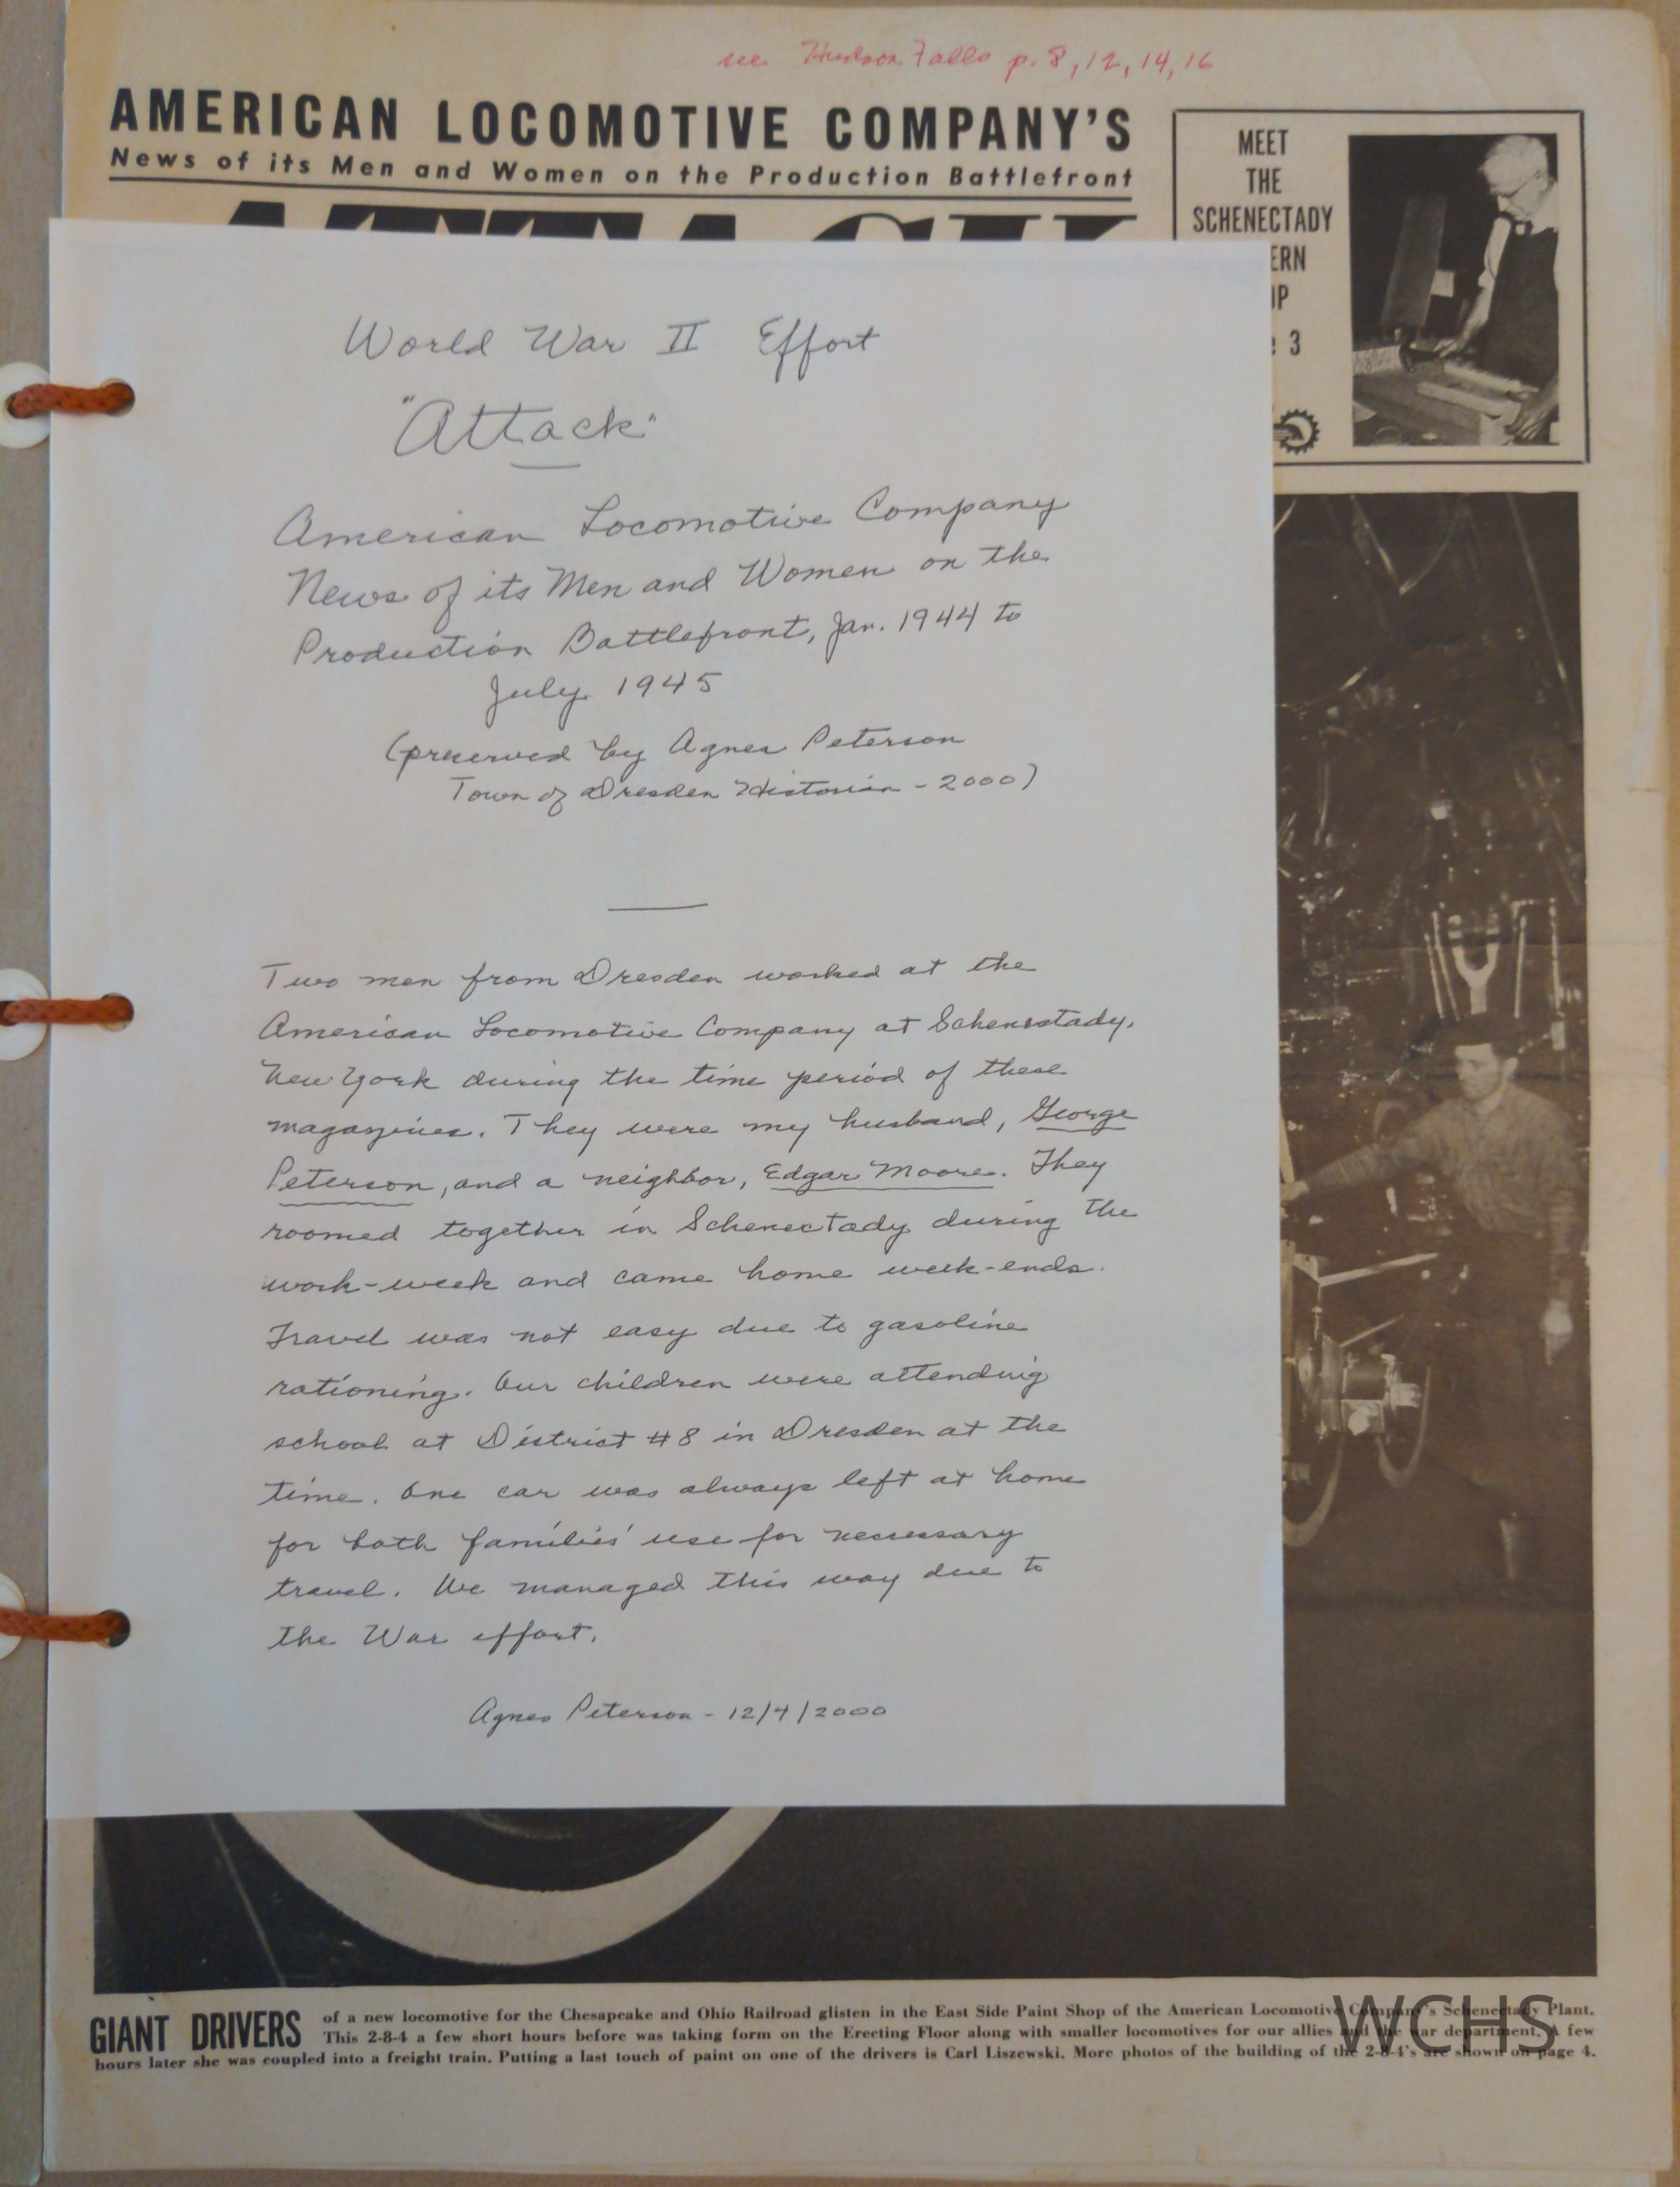 see Hudson Falls p. 8, 12, 14, 16
AMERICAN LOCOMOTIVE COMPANY'S
News of its Men and Women on the Production Battlefront
MEET
THE
SCHENECTADY
ERN
UP
3
World War II Effort
"Attack"
American Locomotive Company
News of its Men and Women on the
Production Battlefront, Jan. 1944 to
July 1945
(preserved by Agnes Peterson
Town of Dresden Historian - 2000)
Two men from Dresden worked at the
American Locomotive Company at Schenectady,
New York during the time period of these
magazines. They were my husband, George
Peterson, and a neighbor, Edgar Moore. They
roomed together in Schenectady during the
work-week and came home week-ends.
Travel was not easy due to gasoline
rationing. Our children were attending
school at District #8 in Dresden at the
time. One car was always left at home
for both families' use for necessary
travel. We managed this way due to
the War effort.
Agnes Peterson - 12/4/2000
GIANT DRIVERS of a new locomotive for the Chesapeake and Ohio Railroad glisten in the East Side Paint Shop of the American Locomotive Company's Schenectady Plant.
This 2-8-4 a few short hours before was taking form on the Erecting Floor along with smaller locomotives for our allies and the war department. A few
hours later she was coupled into a freight train. Putting a last touch of paint on one of the drivers is Carl Liszewski. More photos of the building of the 2-8-4's are shown on page 4.
WCHS